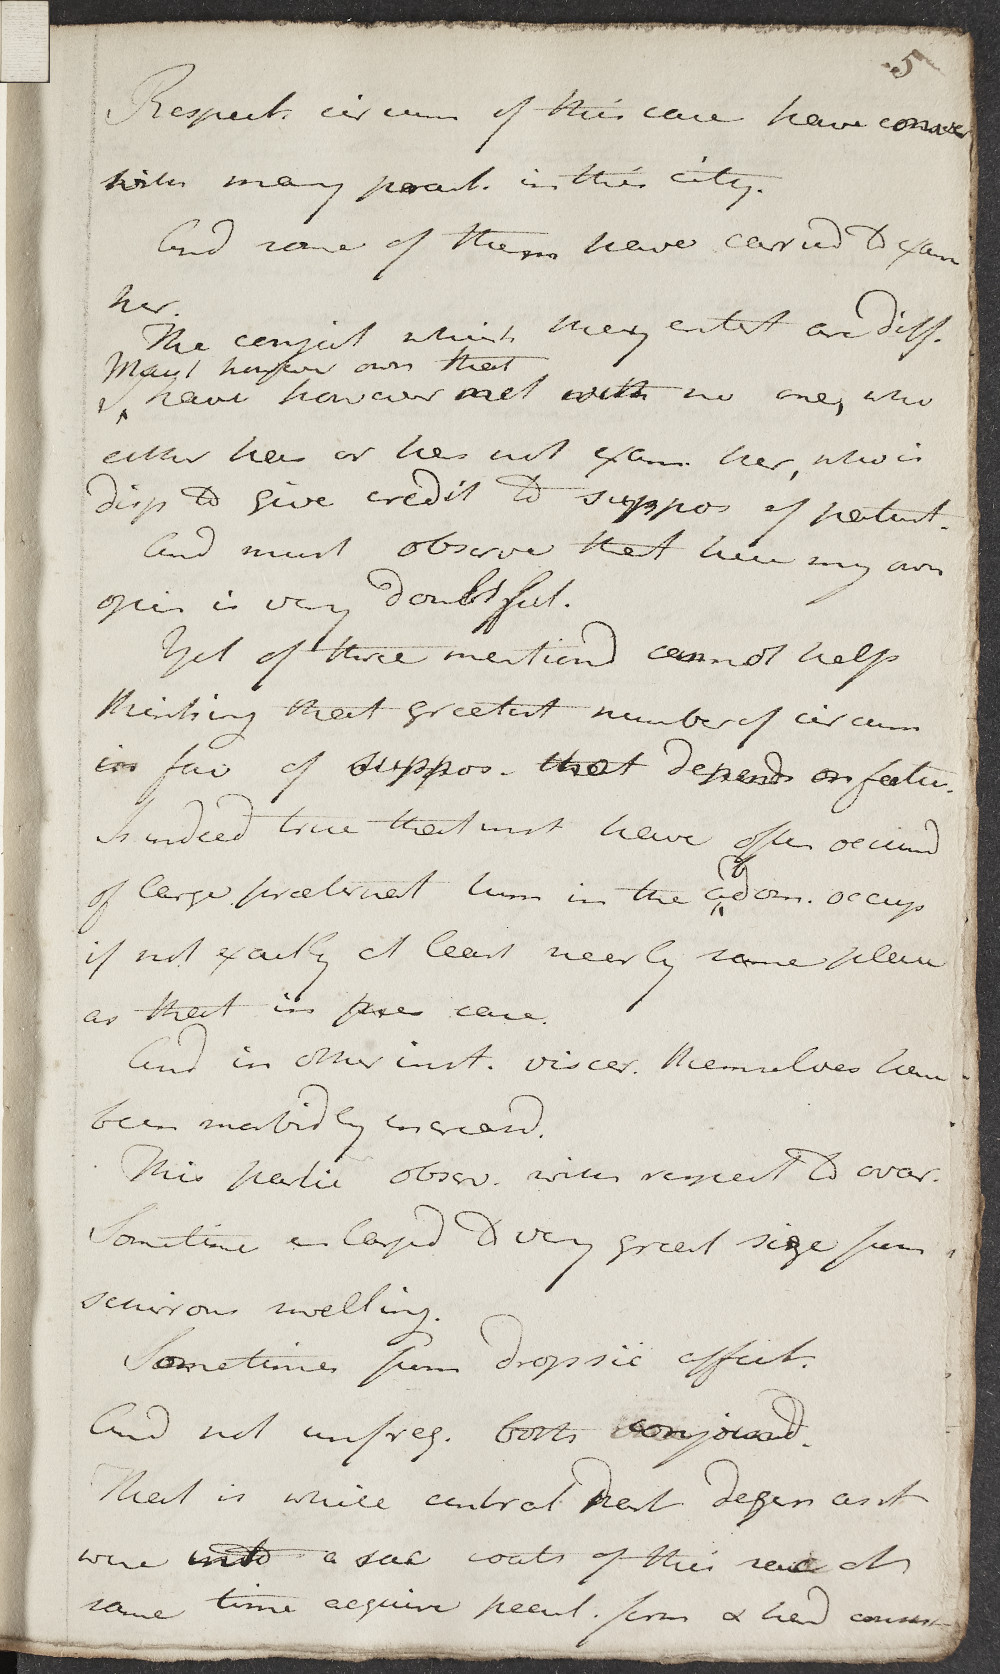 5
Respect. circum of this case have conver
with many pract. in this city.
And some of them have carried to exam
her.
The conject which they entert are diff.
Must however own that
I have however met with no one, who
either has or has not exam. her, who is
disp to give credit to suppos of patient.
And must observe that here my own
opin is very doubtful.
Yet of three mentiond cannot help
thinking that greatest number of circum
in fav of suppos. that depends on foetus.
Is indeed true that inst have often occurrd
of large praeternat tum in the abdom. occup
if not exactly at least nearly same place
as that in pres case.
And in other inst. viscer. themselves have
been morbidly increasd.
This partic observ. with respect to ovar.
Sometime enlargd to very great size from
scirrous swelling.
Sometimes from dropsic affect.
And not unfreq. both conjoind.
That is while central part degen as it
were into a sac coats of this sac at
same time acquire pecul. firm & hard consist